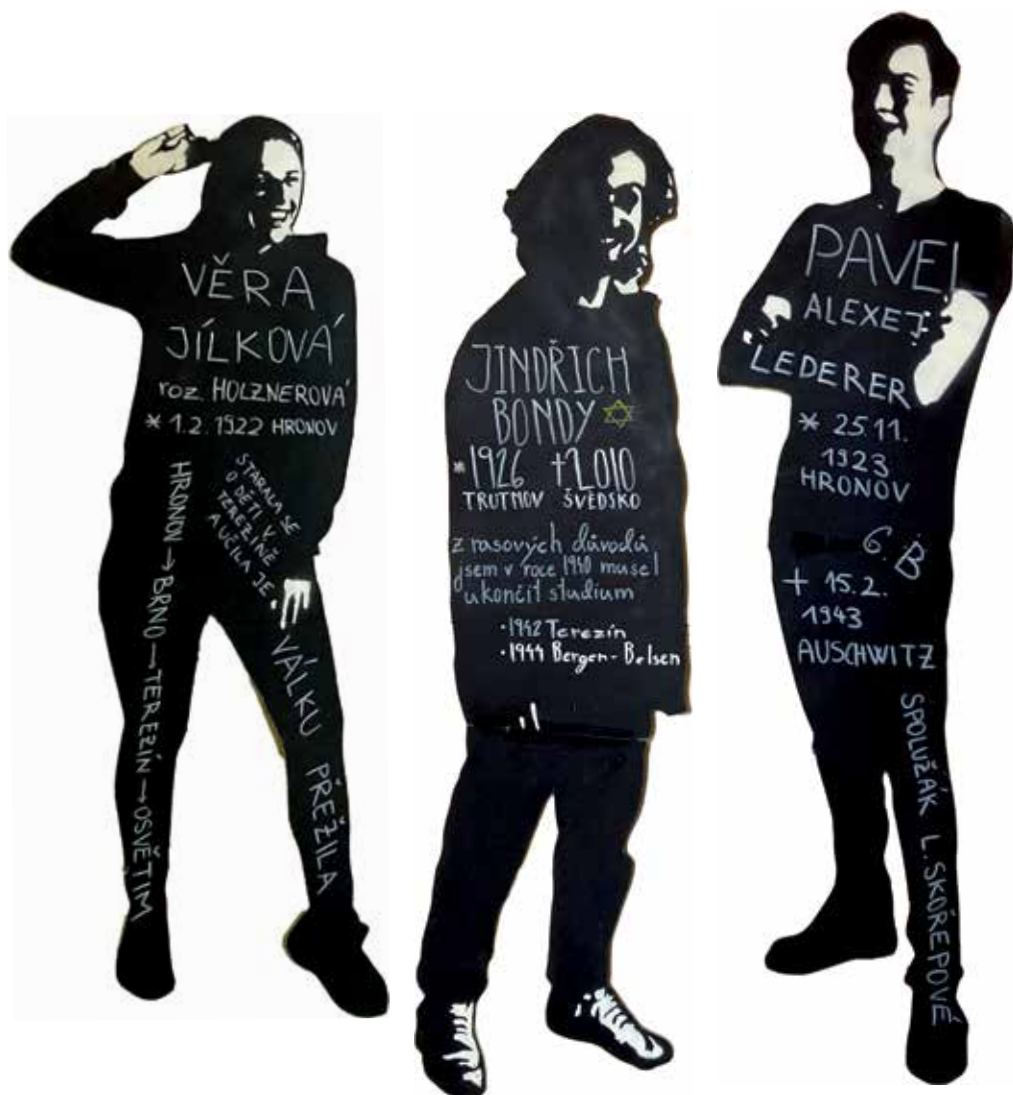 VĚRA
JÍLKOVÁ
roz. HOLZNEROVÁ
* 1.2.1922 HRONOV
HRONOV → BRNO → TEREZÍN → OSVĚTIM
STARALA SE
O DĚTI V
TEREZÍNĚ
A UČILA JE.
VÁLKU PŘEŽILA
JINDŘICH
BONDY
*1926 †2010
TRUTNOV ŠVÉDSKO
z rasových důvodů
jsem v roce 1940 musel
ukončit studium
•1942 Terezín
•1944 Bergen-Belsen
PAVEL
ALEXEJ
LEDERER
* 25.11.
1923
HRONOV
6. B
† 15.2.
1943
AUSCHWITZ
SPOLUŽÁK L. SKOŘEPOVÉ